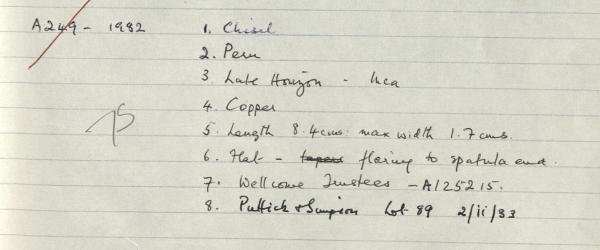 A249 - 1982 1. Chisel
2. Peru
3 Late Horizon - Inca
4. Copper
5. Length 8.4cms. max width 1.7cms.
6. Flat - tapers flaring to spatula end.
7. Wellcome Trustees - A125215.
8. Puttick & Simpson Lot 89 2/ii/33